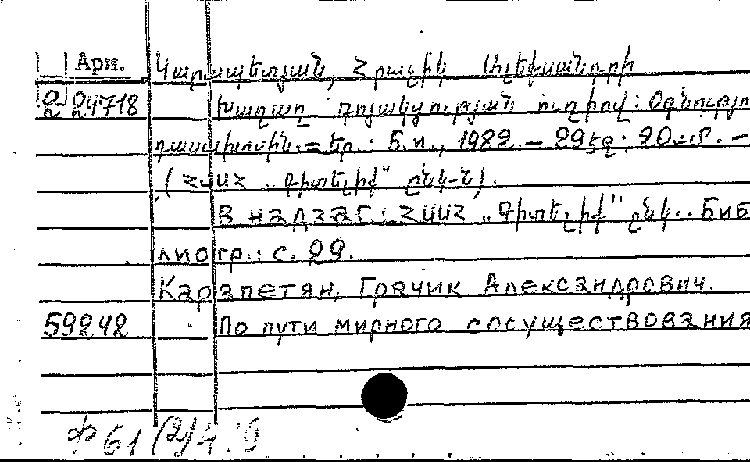 Арм. Կարապետյան, Հրաչիկ Ալեքսանդրի
2 24718 Խաղաղ գոյակցության ուղիով: Օգնություն
դասախոսին. = Եր.: Б. и., 1982. – 29 էջ; 20 սմ. –
(ՀՍՍՀ „Գիտելիք" ընկ-ն).
В надзаг.: ՀՍՍՀ „Գիտելիք" ընկ.. Биб
лиогр.: с. 29.
Карапетян, Грачик Александрович.
59242 По пути мирного сосуществования